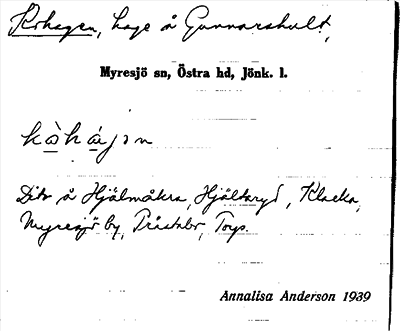 Kohagen, hage å Gunnarshult,
Myresjö sn, Östra hd, Jönk. l.
kòhájən
Dito å Hjälmåkra, Hjältaryd, Klacka,
Myresjö by, Torp.
Annalisa Anderson 1939